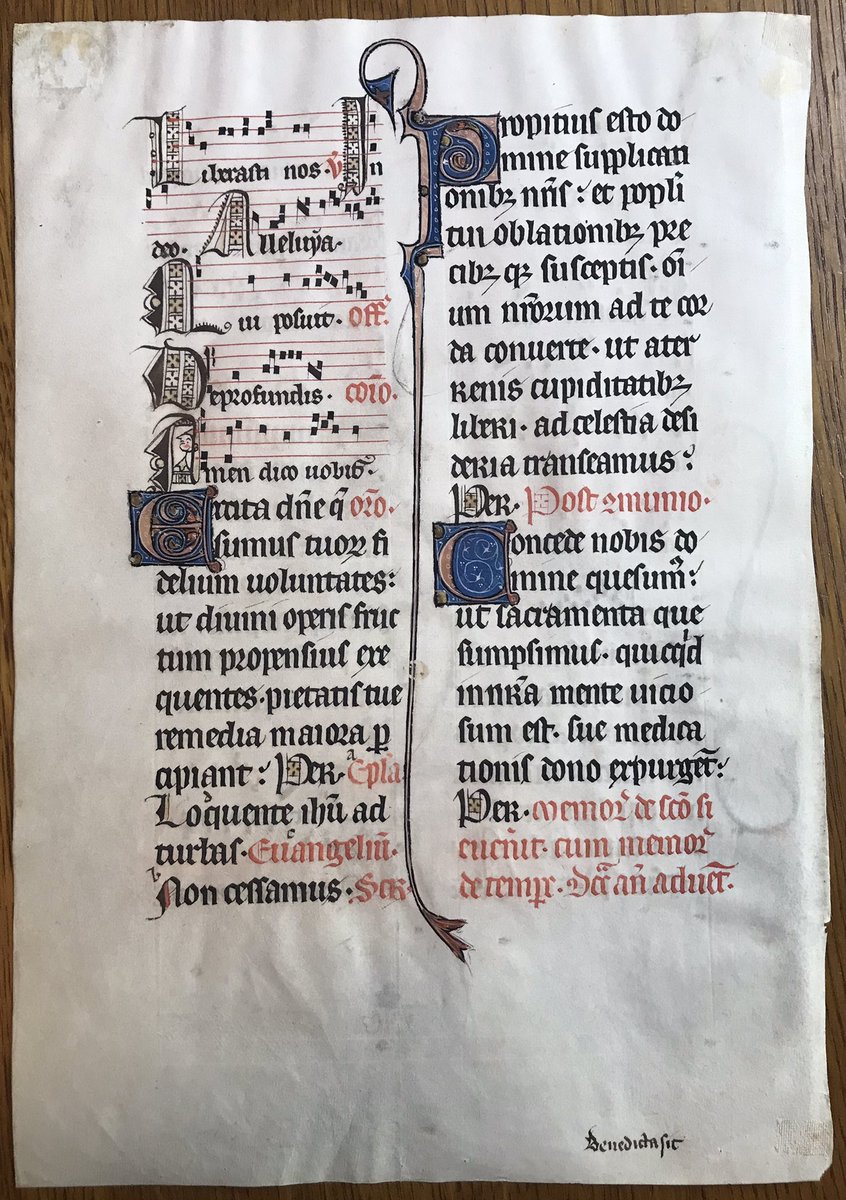 Liberasti nos. V̄ In
deo. Alleluya.
Qui posuit. Off̄.
Deprofundis. Cōio.
Amen dico uobis.
Excita dn̄e q̄ Or̄o.
sumus tuoꝝ fi
delium uoluntates:
ut diuini operis fruc
tum propensius exe
quentes. pietatis tue
remedia maiora ꝑ
cipiant: Per. Epl̄a.
Loquente ih̄u ad
turbas. Euangeliū.
Non cessamus. Scr̄.
Propitius esto do
mine supplicati
onibꝫ nr̄is: et popli
tui oblationibꝫ pre
cibꝫ qꝫ susceptis. om̄i
um nr̄orum ad te cor
da conuerte. ut a ter
renis cupiditatibꝫ
liberi. ad celestia desi
deria transeamus:
Per. Post ꝯmunio.
Concede nobis do
mine quesum̄:
ut sacramenta que
sumpsimus. quicq'd
in nr̄a mente uicio
sum est. sue medica
tionis dono expurget̄:
Per. memor̄ de sc̄o si
euen̄it. cum memor̄
de temꝑe. Dc̄a an̄ aduet̄.
Benedicta sit